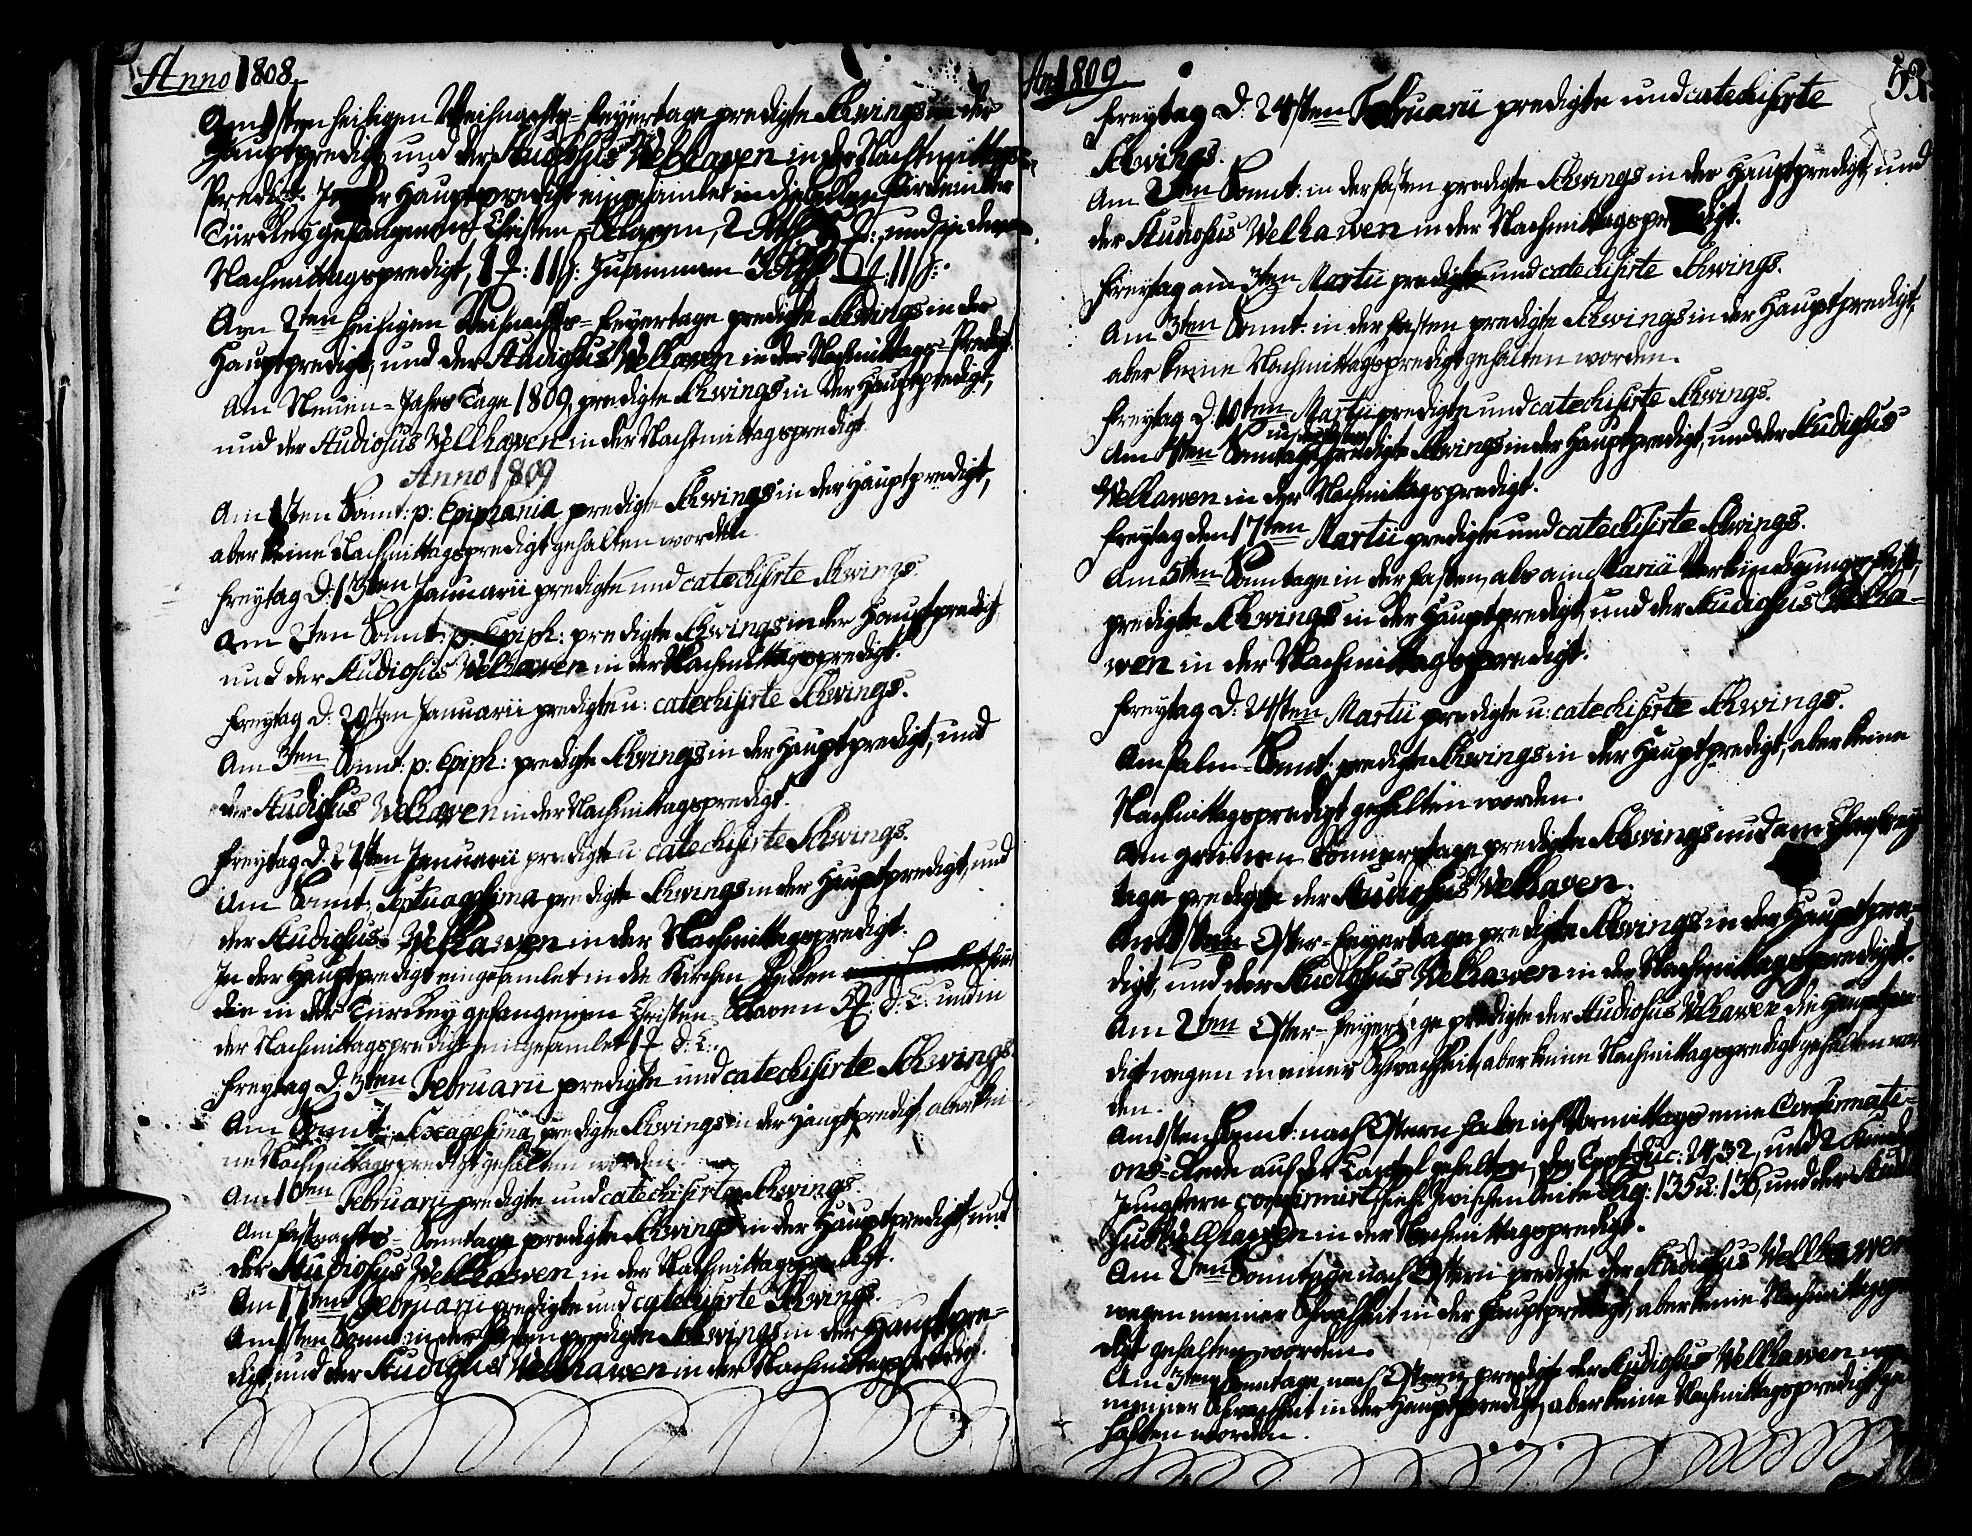 Anno 1808.
Am 1sten heiligen Weihnachts-Feyertage predigte Schwings in der
Hauptpredigt, und der Studiosus Velhawen in der Nachmittags-
Predigt. In der Hauptpredigt eingesamlet in die für die in der
Türckey gefangenen Christen-Sclaven, 2 und in der
Nachmittagspredigt, 1 11 ß: zusammen 3 11 ß:
Am 2ten heiligen Weihnachts-Feyertage predigte Schwings in der
Hauptpredigt, und der Studiosus Velhawen in der Nachmittags-Predigt.
Am Neuen-Jahrs Tage 1809, predigte Schwings in der Hauptpredigt,
und der Studiosus Velhawen in der Nachmittagspredigt.
Anno 1809
Am 1sten Sonnt: p: Epiphania predigte Schwings in der Hauptpredigt,
aber keine Nachmittagspredigt gehalten worden.
Freytag D: 13ten Januarii predigte und catechisirte Schwings.
Am 2ten Sonnt: p: Epiph: predigte Schwings in der Hauptpredigt,
und der Studiosus Velhawen in der Nachmittagspredigt.
Freytag D: 20sten Januarii predigte u: catechisirte Schwings.
Am 3ten Sonnt: p: Epiph: predigte Schwings in der Hauptpredigt, und
der Studiosus Velhawen in der Nachmittagspredigt.
Freytag D: 27sten Januarii predigte u: catechisirte Schwings.
Am Sonnt: Septuagesima predigte Schwings in der Hauptpredigt, und
der Studiosus Velhawen in der Nachmittagspredigt.
In der Hauptpredigt eingesamlet in die Kirchen für
die in der Türckey gefangenen Christen-Sclaven und in
der Nachmittagspredigt eingesamlet 1
Freytag D: 3ten Februarii predigte und catechisirte Schwings.
Am Sonnt: Sexagesima predigte Schwings in der Hauptpredigt, aber kei
ne Nachmittagspredigt gehalten worden.
Am 10ten Februarii predigte und catechisirte Schwings.
Am Fastnachts-Sonntage predigte Schwings in der Hauptpredigt, und
der Studiosus Velhawen in der Nachmittagspredigt.
Am 17ten Februarii predigte und catechisirte Schwings.
Am 1sten Sonnt: in der Fasten predigte Schwings in der Hauptpre-
digt, und der Studiosus Velhawen in der Nachmittagspredigt.
An 1809
53.
Freytag D: 24sten Februarii predigte und catechisirte
Schwings.
Am 2ten Sonnt: in der Fasten predigte Schwings in der Hauptpredigt, und
der Studiosus Velhawen in der Nachmittagspredigt.
Freytag am 3ten Martii predigte und catechisirte Schwings.
Am 3ten Sonnt: in der Fasten predigte Schwings in der Hauptpredigt,
aber keine Nachmittagspredigt gehalten worden.
Freytag D: 10ten Martii predigte und catechisirte Schwings.
in der Fasten
Am 4ten Sonntage predigte Schwings in der Hauptpredigt, und der Studiosus
Velhawen in der Nachmittagspredigt.
Freytag den 17ten Martii predigte und catechisirte Schwings.
Am 5ten Sonntage in der Fasten, als am Mariä Verkündigungs Fest,
predigte Schwings in der Hauptpredigt, und der Studiosus Velha-
wen in der Nachmittagspredigt.
Freytag D: 24sten Martii predigte u: catechisirte Schwings.
Am Palm-Sonnt: predigte Schwings in der Hauptpredigt, aber keine
Nachmittagspredigt gehalten worden.
Am grünen Donnerstage predigte Schwings und am Charfrey
tage predigte der Studiosus Velhaven.
Am 1sten Oster-Feyertage predigte Schwings in der Hauptpre-
digt, und der Studiosus Velhawen in der Nachmittagspredigt.
Am 2ten Oster-Feyertage predigte der Studiosus Velhawen die Hauptpre-
digt wegen meiner Schwachheit, aber keine Nachmittagspredigt gehalten wor
den.
Am 1sten Sonnt: nach Ostern habe ich Vormittags eine Confirmati-
ons-Rede auf der Cantzel gehalten, den Text Luc: 24,32, und 2 Kinder
Jungfern confirmirt, sieh zwischen Seite Pag: 135 u: 136, und der Studio
sus Velhawen in der Nachmittagspredigt.
Am 2ten Sonntage nach Ostern predigte der Studiosus Velhawen
wegen meiner Schwachheit in der Hauptpredigt, aber keine Nachmittagspre
digt gehalten worden.
Am 3ten Sonntage nach Ostern predigte der Studiosus Velhawen wegen
meiner Schwachheit in der Hauptpredigt, aber keine Nachmittagspredigt ge
halten worden.